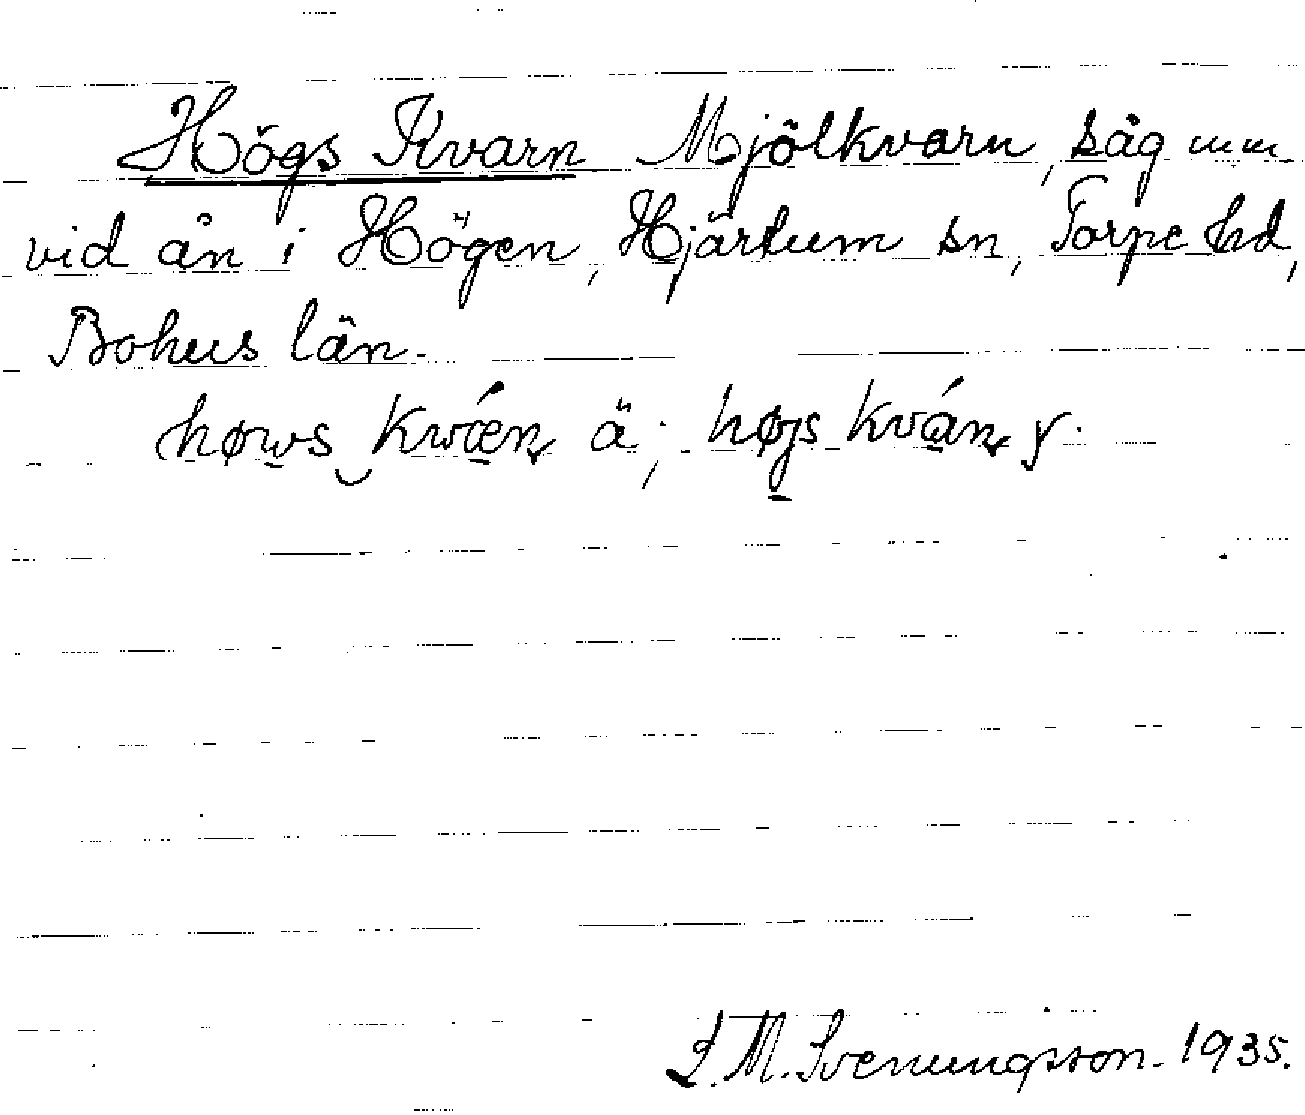 Högs Kvarn Mjölkvarn, såg mm
vid ån i Högen, Hjärtum sn, Torpe hd,
Bohus län.
høws kwæn ä; højs kván y.
S. M. Svenungsson. 1935.